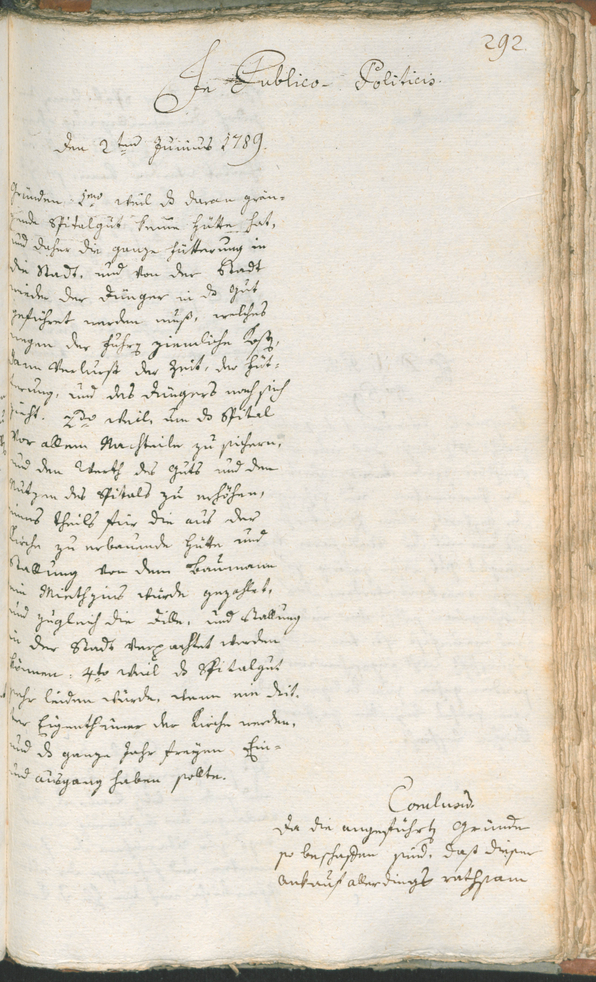 292
In Publico-Politicis.
den 2ten Junius 1789.
Gründen 1mo weil d daran grän-
zende Spitalgut keine Hütte hat,
und daher die ganze Fütterung in
die Stadt, und von der Stadt
wieder der Dünger in d Gut
geführet werden muß, welches
wegen der Fuhr ziemliche Kost,
dann Verlurst der Zeit, der Füt-
terung, und des Düngers nach sich
zieht. 2do weil, um d Spital
vor allem Nachteile zu sichern,
und den Werth des Guts und den
Nutzen des Spitals zu erhöhen,
eines theils für die aus der
Kirche zu erbauende Hütte und
Stallung von dem Baumann
ein Miethzins würde gezahlet,
und zugleich die Dille, und Stallung
in der Stadt verpachtet werden
können: 4to weil d Spitalgut
sehr leiden würde, wenn ein drit-
ter Eigenthümer der Kirche werden,
und d ganze Jahr freyen Ein-
und ausgang haben sollte.
Conclusum
Da die angeführte Gründe
so beschaffen sind, daß dieser
Ankauf allerdings rathsam